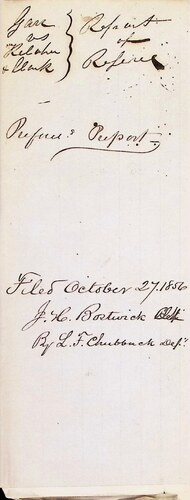 Gare
vs
Kelcher
& Clark
Report
of
Referee
Referee's Report
Filed October 27. 1856
J. H. Bostwick Clk
By L. F. Chubbuck Depy